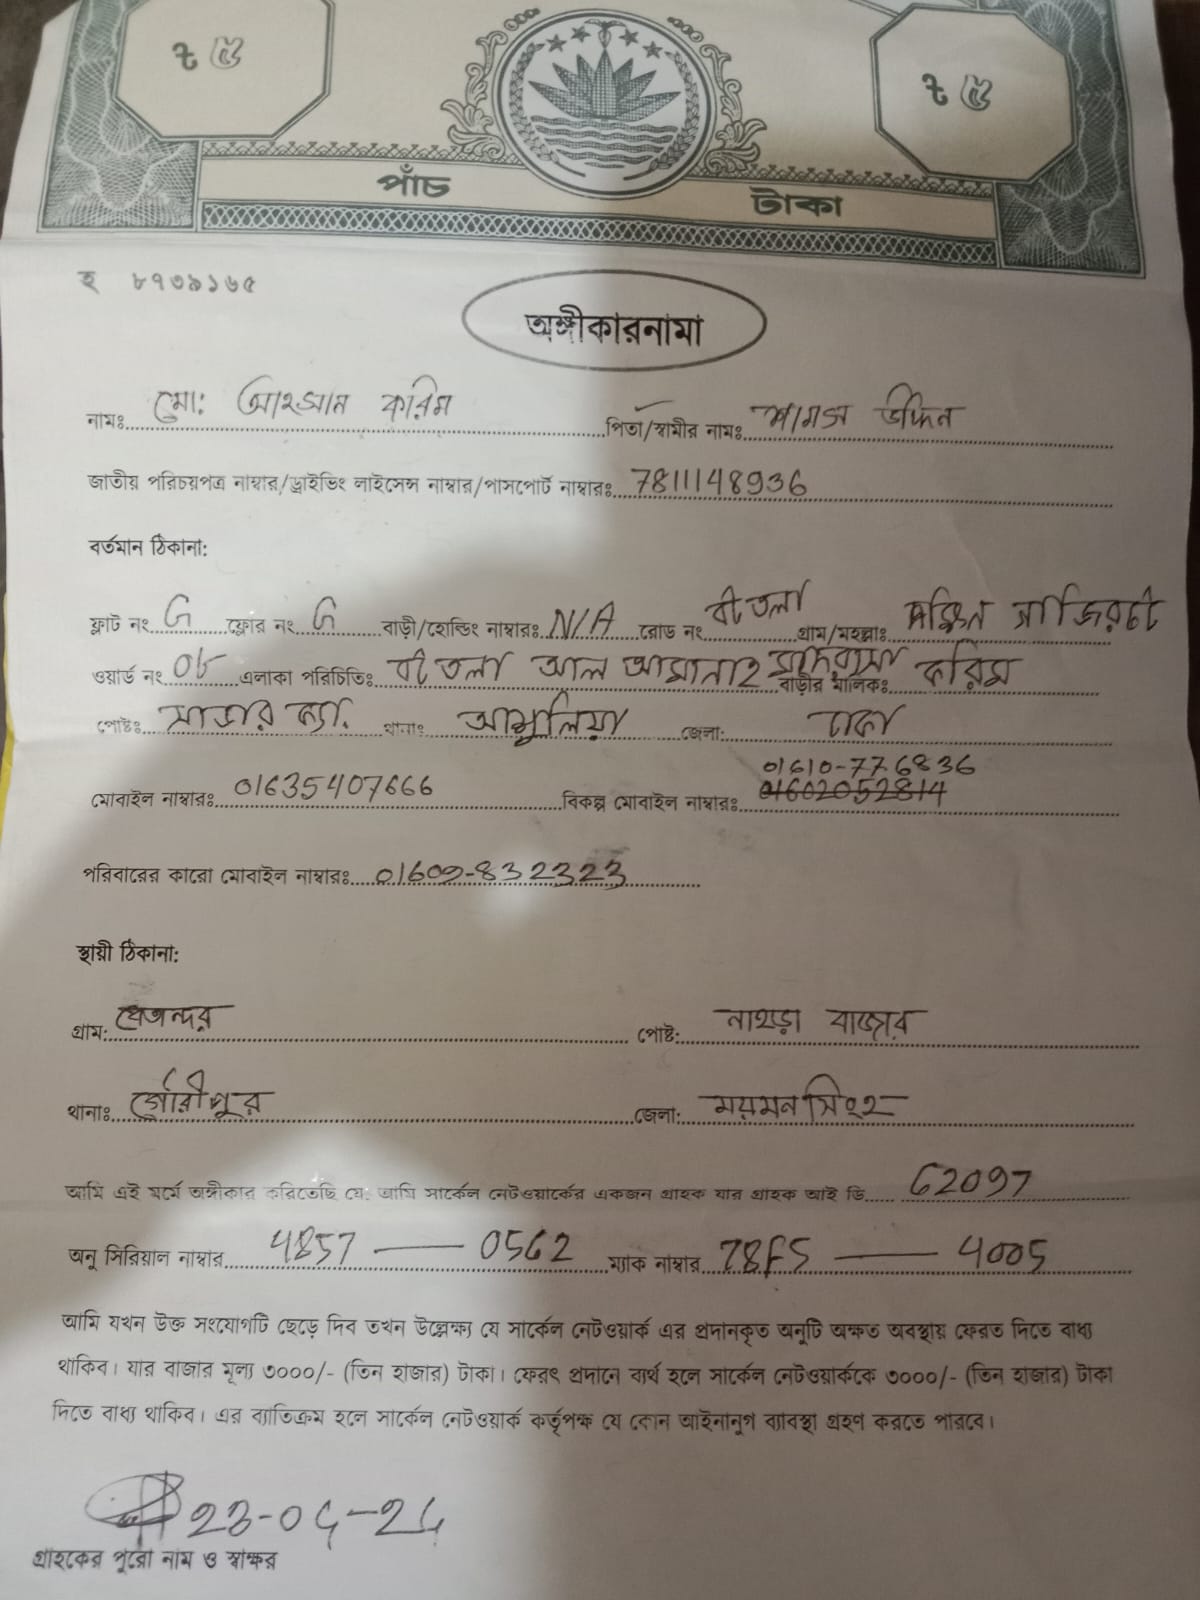 ৳ ৫ ৳ ৫
পাঁচ টাকা
হ ৮৭৩৯১৬৫
অঙ্গীকারনামা
নামঃ মো: আহসান করিম পিতা/স্বামীর নামঃ শামস উদ্দিন
জাতীয় পরিচয়পত্র নাম্বার/ড্রাইভিং লাইসেন্স নাম্বার/পাসপোর্ট নাম্বারঃ 7811148936
বর্তমান ঠিকানা:
ফ্লাট নং G ফ্লোর নং G বাড়ী/হোল্ডিং নাম্বারঃ N/A রোড নং বটতলা গ্রাম/মহল্লাঃ দক্ষিন গাজিরচট
ওয়ার্ড নং ০৮ এলাকা পরিচিতিঃ বটতলা আল আমানাহ মাদরাসা বাড়ীর মালিকঃ করিম
পোষ্টঃ সাভার ক্যা. থানাঃ আশুলিয়া জেলা: ঢাকা
01610-776836
মোবাইল নাম্বারঃ 01635407666 বিকল্প মোবাইল নাম্বারঃ 01602052814
পরিবারের কারো মোবাইল নাম্বারঃ 01609-832323
স্থায়ী ঠিকানা:
গ্রাম: পোষ্ট: নাহড়া বাজার
থানাঃ গৌরীপুর জেলা: ময়মনসিংহ
আমি এই মর্মে অঙ্গীকার করিতেছি যে, আমি সার্কেল নেটওয়ার্কের একজন গ্রাহক যার গ্রাহক আই ডি 62097
অনু সিরিয়াল নাম্বার 4857 — 0562 ম্যাক নাম্বার 78F5 — 4005
আমি যখন উক্ত সংযোগটি ছেড়ে দিব তখন উল্লেক্ষ্য যে সার্কেল নেটওয়ার্ক এর প্রদানকৃত অনুটি অক্ষত অবস্থায় ফেরত দিতে বাধ্য
থাকিব। যার বাজার মূল্য ৩০০০/- (তিন হাজার) টাকা। ফেরৎ প্রদানে ব্যর্থ হলে সার্কেল নেটওয়ার্ককে ৩০০০/- (তিন হাজার) টাকা
দিতে বাধ্য থাকিব। এর ব্যাতিক্রম হলে সার্কেল নেটওয়ার্ক কর্তৃপক্ষ যে কোন আইনানুগ ব্যাবস্থা গ্রহণ করতে পারবে।
23-04-24
গ্রাহকের পুরো নাম ও স্বাক্ষর